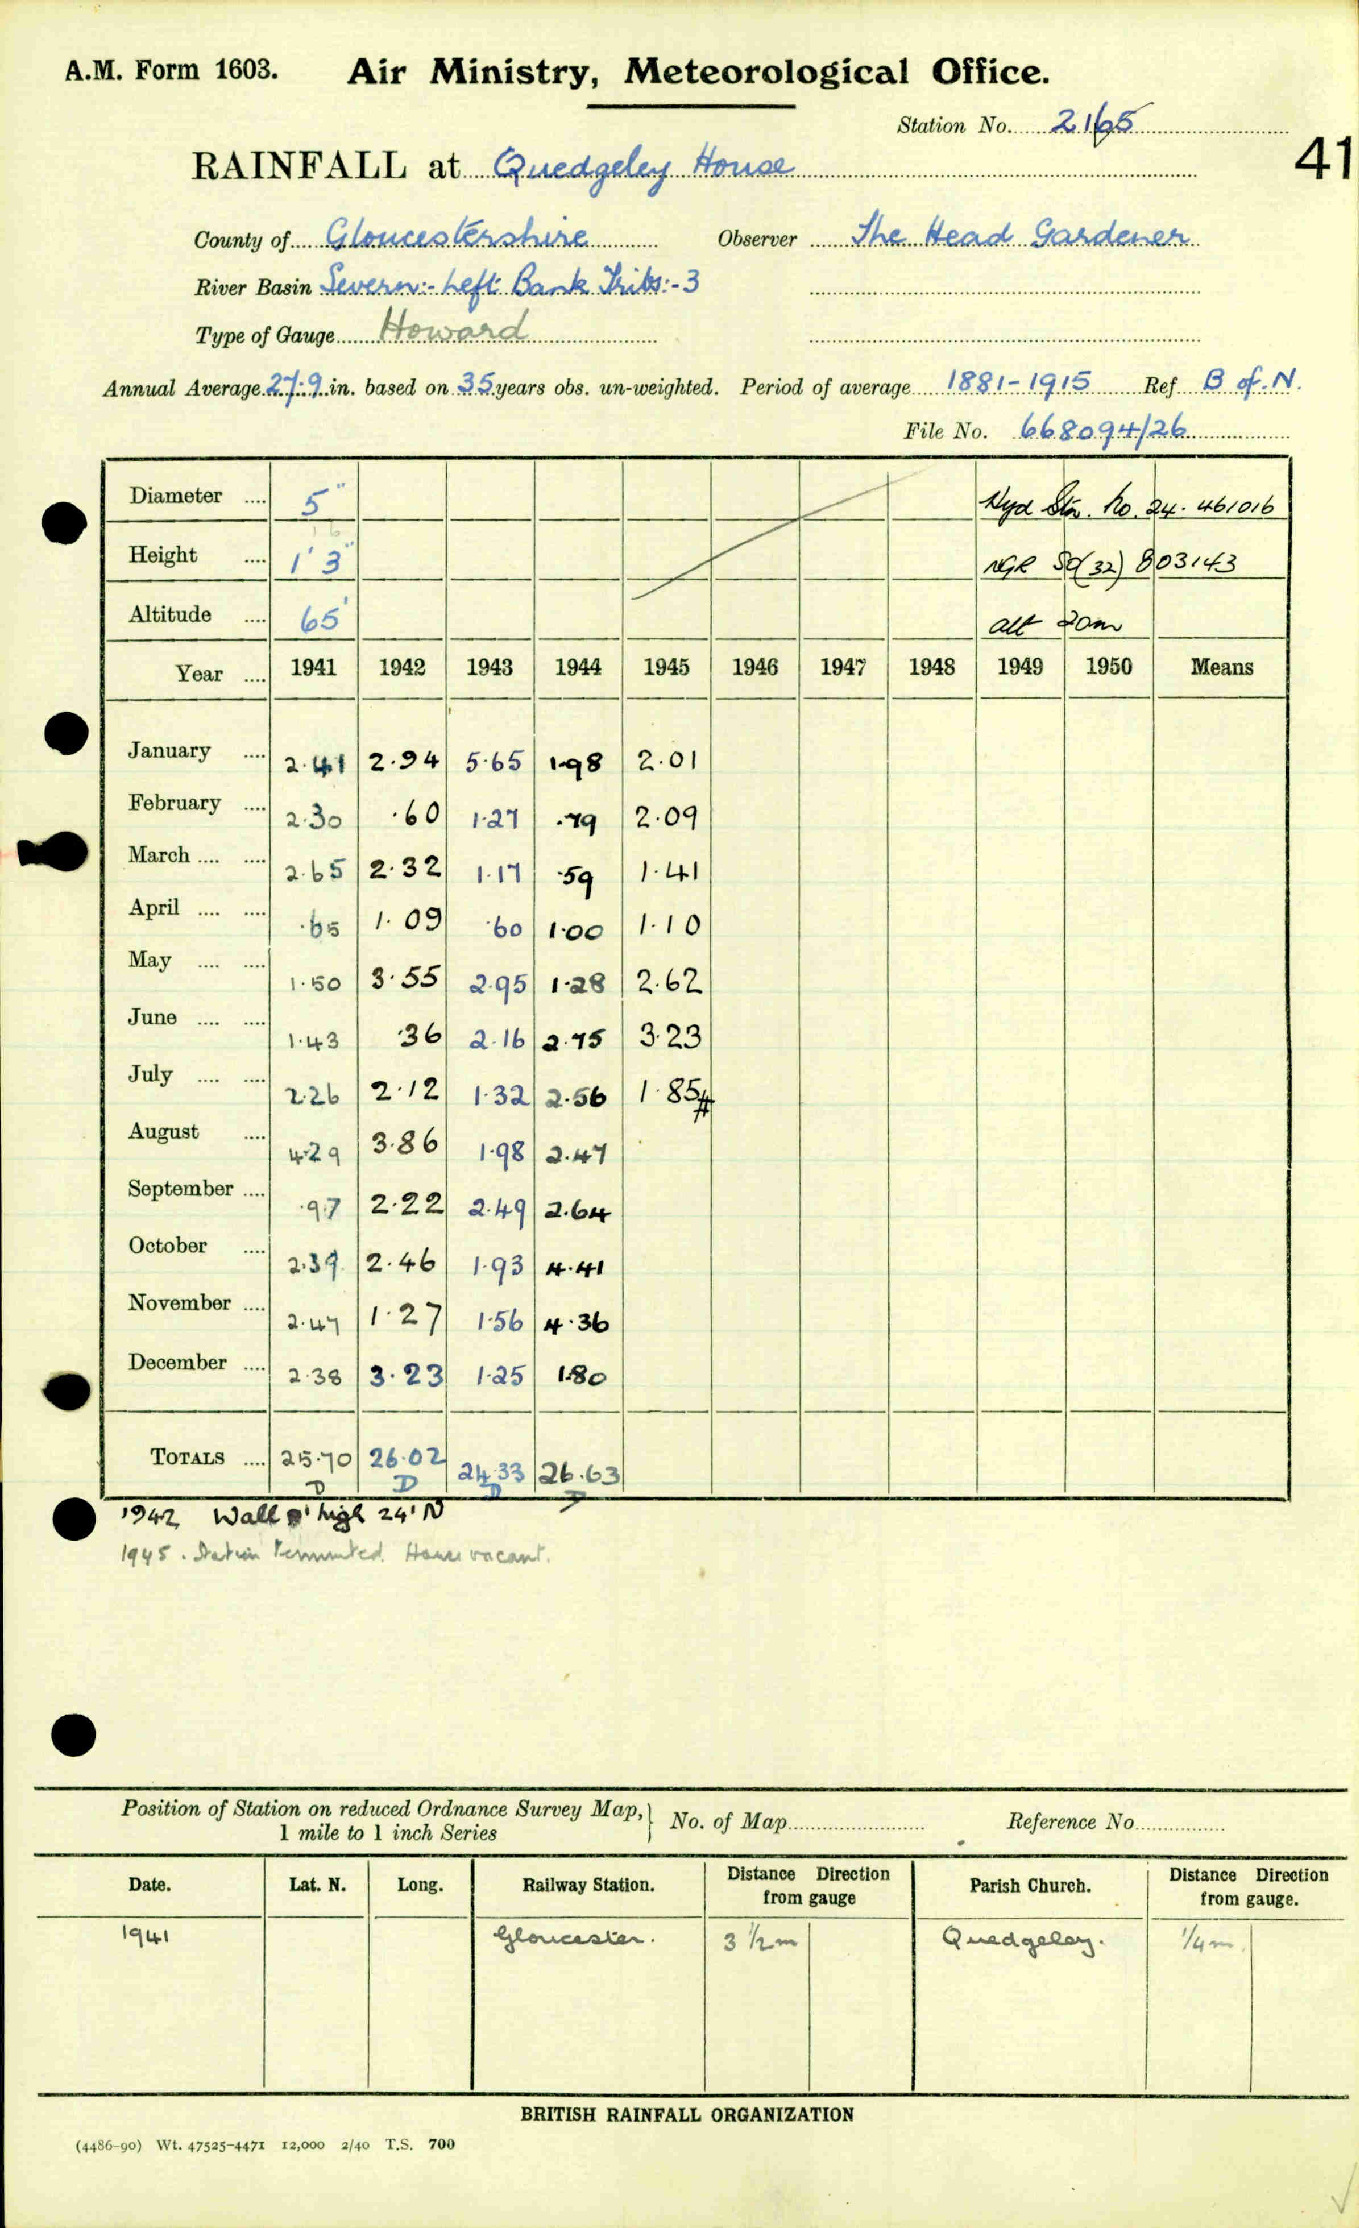 A.M. Form 1603. Air Ministry, Meteorological Office.
Station No. 2165
41
RAINFALL at Quedgeley House
County of Gloucestershire Observer The Head Gardener
River Basin Severn:- Left Bank Tribs:-3
Type of Gauge Howard
Annual Average 27.9 in. based on 35 years obs. un-weighted. Period of average 1881-1915 Ref B of N.
File No. 668094/26
Diameter .... 5" Hyd Stn. No. 24. 461016
Height .... 1' 3" NGR SO(32) 803143
Altitude .... 65' alt 20m
Year .... 1941 1942 1943 1944 1945 1946 1947 1948 1949 1950 Means
January .... 2.41 2.94 5.65 1.98 2.01
February .... 2.30 .60 1.27 .79 2.09
March .... .... 2.65 2.32 1.17 .59 1.41
April .... .... .65 1.09 .60 1.00 1.10
May .... .... 1.50 3.55 2.95 1.28 2.62
June .... .... 1.43 .36 2.16 2.75 3.23
July .... .... 2.26 2.12 1.32 2.56 1.85#
August .... 4.29 3.86 1.98 2.47
September .... .97 2.22 2.49 2.64
October .... 2.39 2.46 1.93 4.41
November .... 2.47 1.27 1.56 4.36
December .... 2.38 3.23 1.25 1.80
TOTALS .... 25.70 26.02 24.33 26.63
D D D D
1942 Wall high 24' N
1945. Station terminated. House vacant.
Position of Station on reduced Ordnance Survey Map, } No. of Map Reference No
1 mile to 1 inch Series
Date. Lat. N. Long. Railway Station. Distance Direction from gauge Parish Church. Distance Direction from gauge.
1941 Gloucester. 3 1/2 m Quedgeley. 1/4 m.
BRITISH RAINFALL ORGANIZATION
(4486-90) Wt. 47525-4471 12,000 2/40 T.S. 700